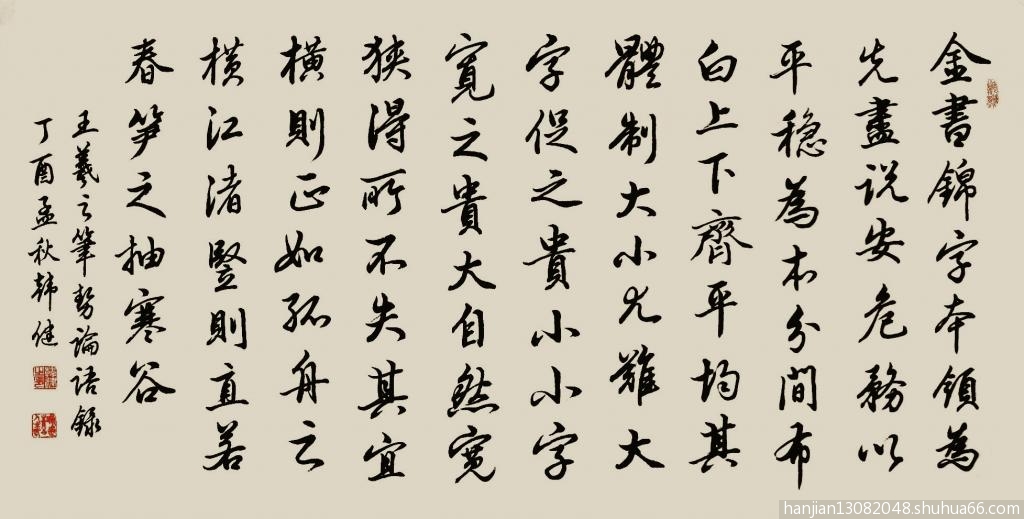 金書錦字本領為
先盡説安危務以
平穩為本分間布
白上下齊平均其
體制大小尤難大
字促之貴小小字
寬之貴大自然寬
狹得所不失其宜
橫則正如孤舟之
橫江渚豎則直若
春笋之抽寒谷
王羲之筆勢論語録
丁酉孟秋韓健
hanjian13082048.shuhua66.com